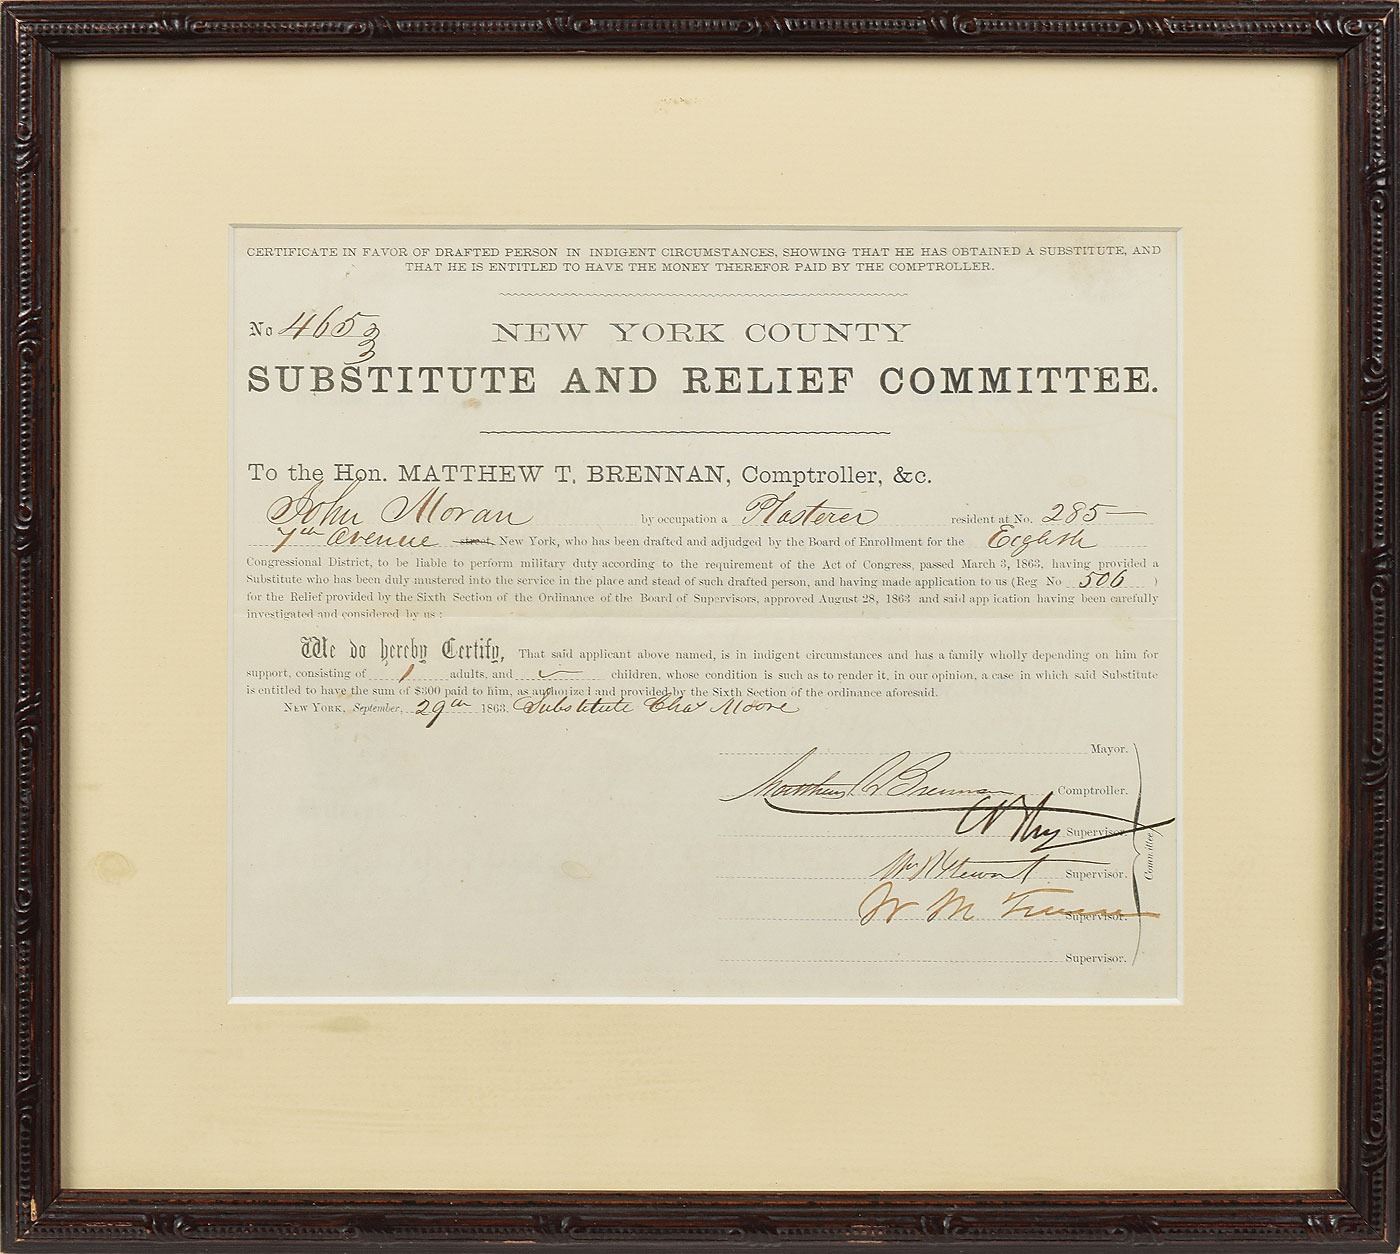 CERTIFICATE IN FAVOR OF DRAFTED PERSON IN INDIGENT CIRCUMSTANCES, SHOWING THAT HE HAS OBTAINED A SUBSTITUTE, AND
THAT HE IS ENTITLED TO HAVE THE MONEY THEREFOR PAID BY THE COMPTROLLER.
No 465 3/3 NEW YORK COUNTY
SUBSTITUTE AND RELIEF COMMITTEE.
To the Hon. MATTHEW T. BRENNAN, Comptroller, &c.
John Moran by occupation a Plasterer resident at No. 285
7th Avenue street, New York, who has been drafted and adjudged by the Board of Enrollment for the Eighth
Congressional District, to be liable to perform military duty according to the requirement of the Act of Congress, passed March 3, 1863, having provided a
Substitute who has been duly mustered into the service in the place and stead of such drafted person, and having made application to us (Reg No 506 )
for the Relief provided by the Sixth Section of the Ordinance of the Board of Supervisors, approved August 28, 1863 and said app ication having been carefully
investigated and considered by us :
We do hereby Certify, That said applicant above named, is in indigent circumstances and has a family wholly depending on him for
support, consisting of 1 adults, and children, whose condition is such as to render it, in our opinion, a case in which said Substitute
is entitled to have the sum of $300 paid to him, as authorized and provided by the Sixth Section of the ordinance aforesaid.
NEW YORK, September, 29th 1863. Substitute Chas Moore
Mayor.
Matthew T Brennan Comptroller.
Supervisor.
Wm R Stewart Supervisor.
W M Tweed Supervisor.
Supervisor.
Committee